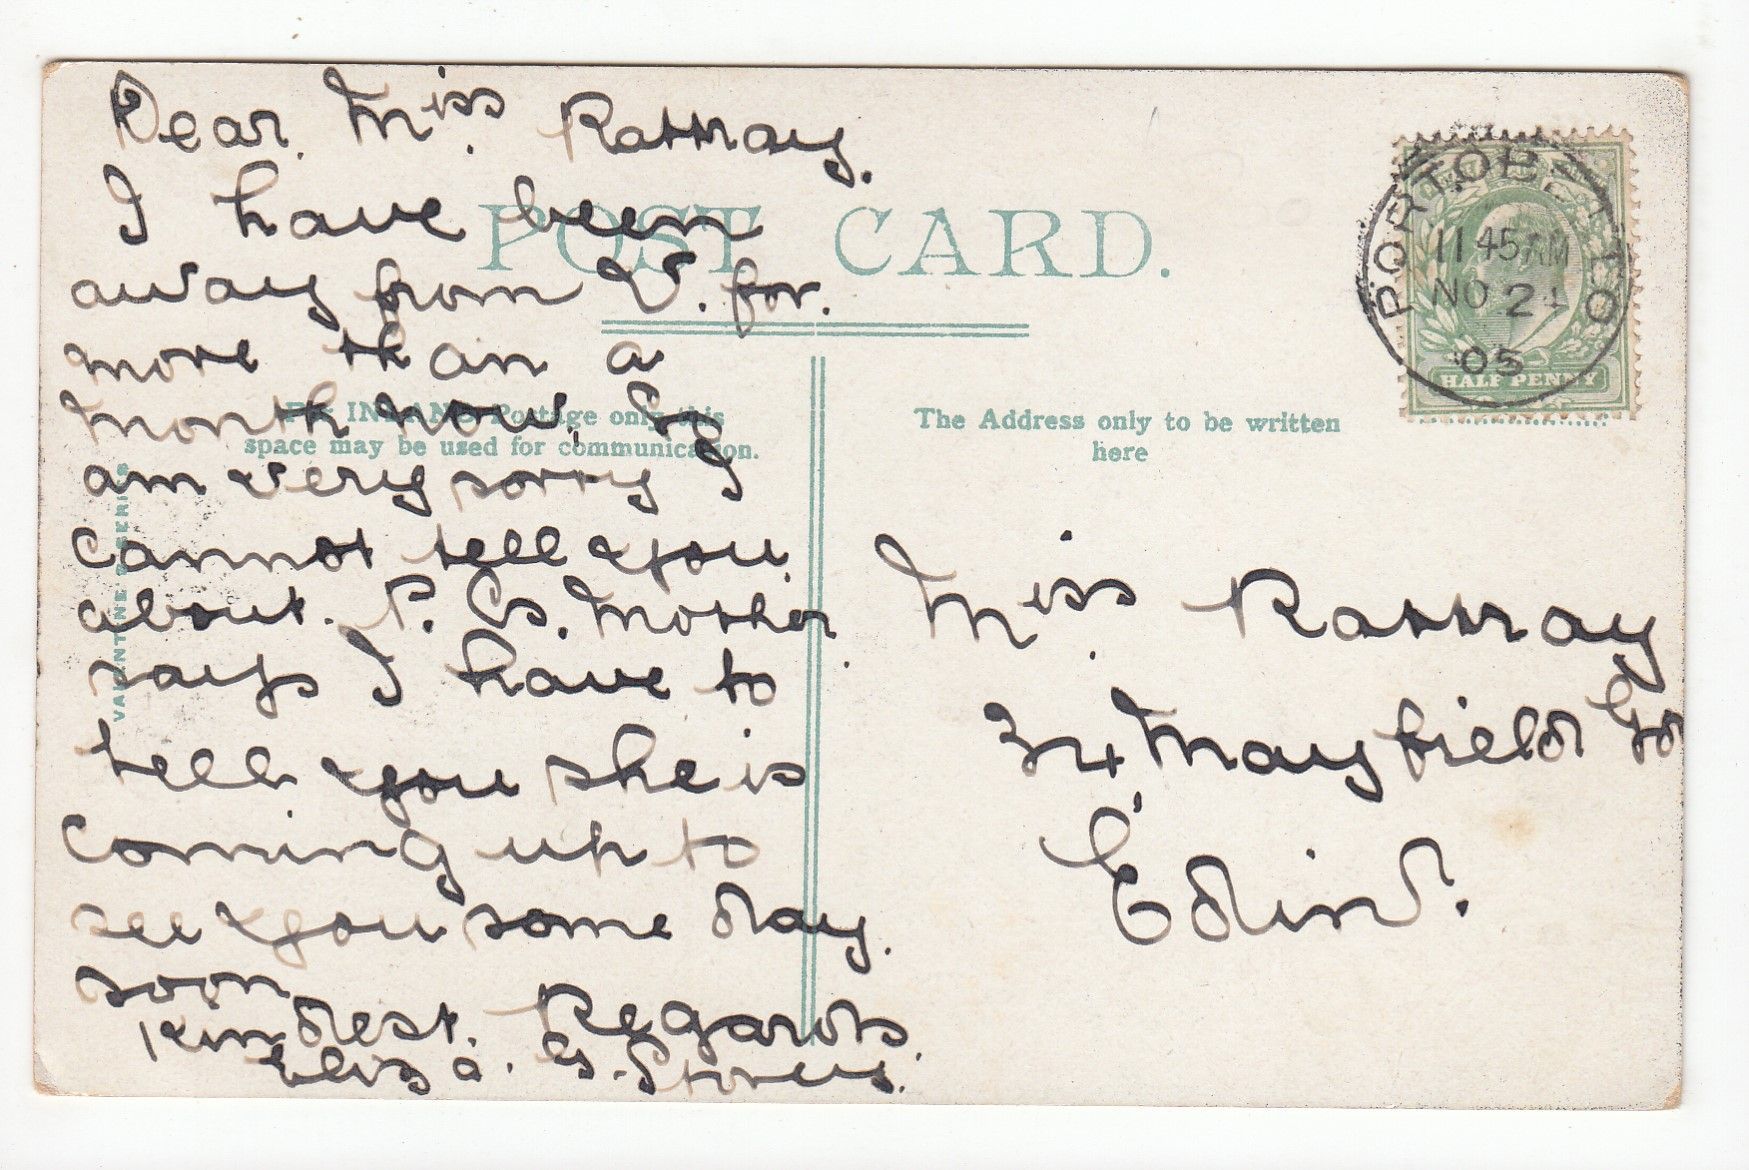 Dear Miss Rattray.
I have been
away from V. for.
more than a
month now, So
am very sorry I
cannot tell you
about. P. Cs. Mother
says I have to
tell you she is
coming up to
see you some day.
soon
Kindest. Regards.
Eliza. G.
POST CARD.
FOR INLAND Postage only this
space may be used for communication.
VALENTINE'S SERIES
The Address only to be written
here
PORTOBELLO
11 45 AM
NO 21
05
HALF PENNY
Miss Rattray
34, Mayfield Gd
Edin.